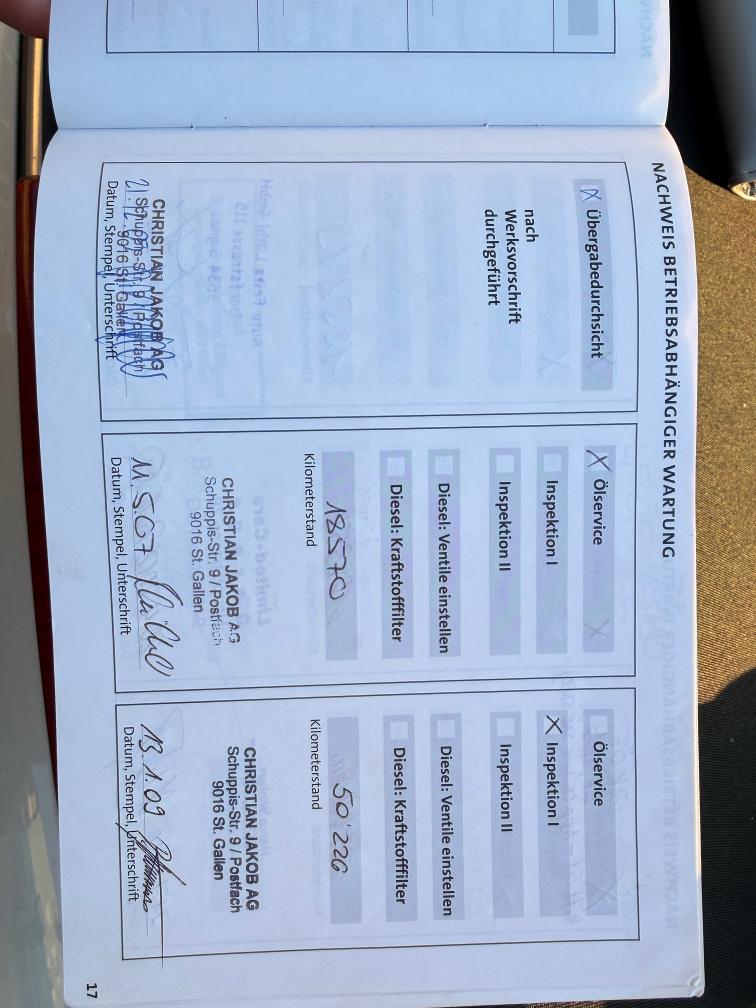 NACHWEIS BETRIEBSABHÄNGIGER WARTUNG
Übergabedurchsicht
nach
Werksvorschrift
durchgeführt
CHRISTIAN JAKOB AG
Schuppis-Str. 9 / Postfach
9016 St. Gallen
Datum, Stempel, Unterschrift
Ölservice
Inspektion I
Inspektion II
Diesel: Ventile einstellen
Diesel: Kraftstofffilter
18570
Kilometerstand
CHRISTIAN JAKOB AG
Schuppis-Str. 9 / Postfach
9016 St. Gallen
11.5.07
Datum, Stempel, Unterschrift
Ölservice
Inspektion I
Inspektion II
Diesel: Ventile einstellen
Diesel: Kraftstofffilter
50'226
Kilometerstand
CHRISTIAN JAKOB AG
Schuppis-Str. 9 / Postfach
9016 St. Gallen
13.1.09
Datum, Stempel, Unterschrift
17